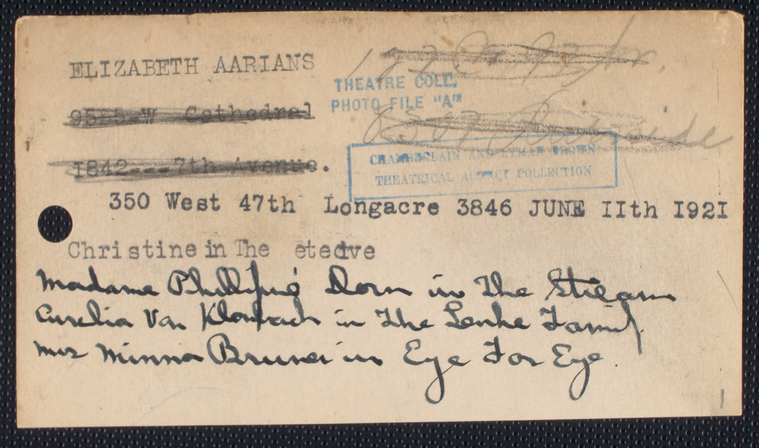 ELIZABETH AARIANS
THEATRE COLL.
PHOTO FILE "A"
9545 W Cathedral
1842---7th Avenue.
CHAMBERLAIN AND LYMAN BROWN
THEATRICAL AGENCY COLLECTION
350 West 47th Longacre 3846 JUNE IIth I92I
Christine in The etective
Madame Dorn in The Stream
Aurelia Van in The Lenke Family
Mrs Minna Bruner in Eye For Eye